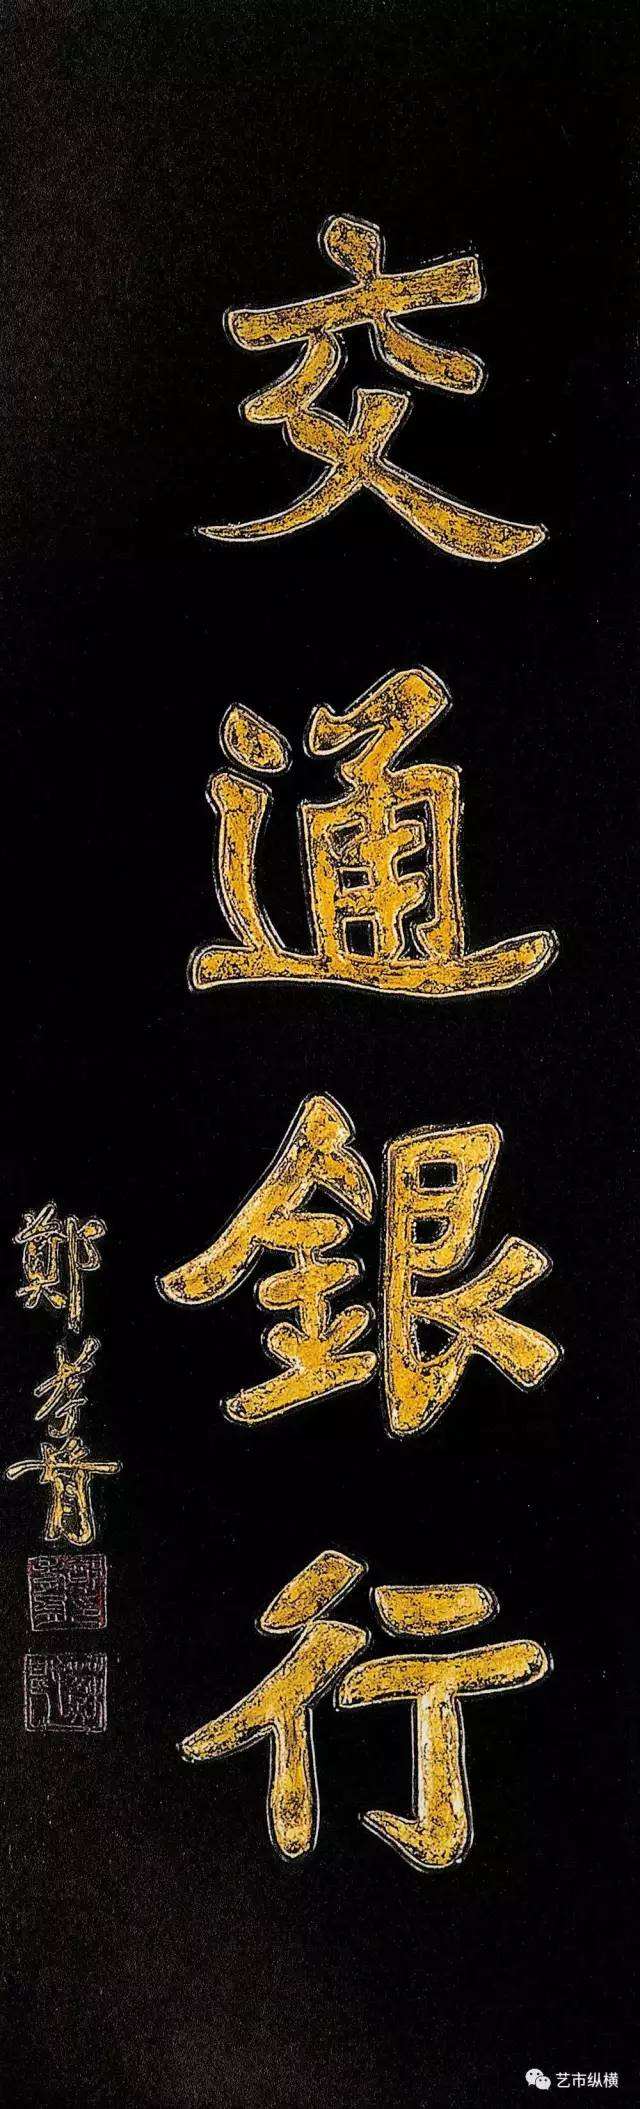 交通銀行
鄭孝胥
艺市纵横